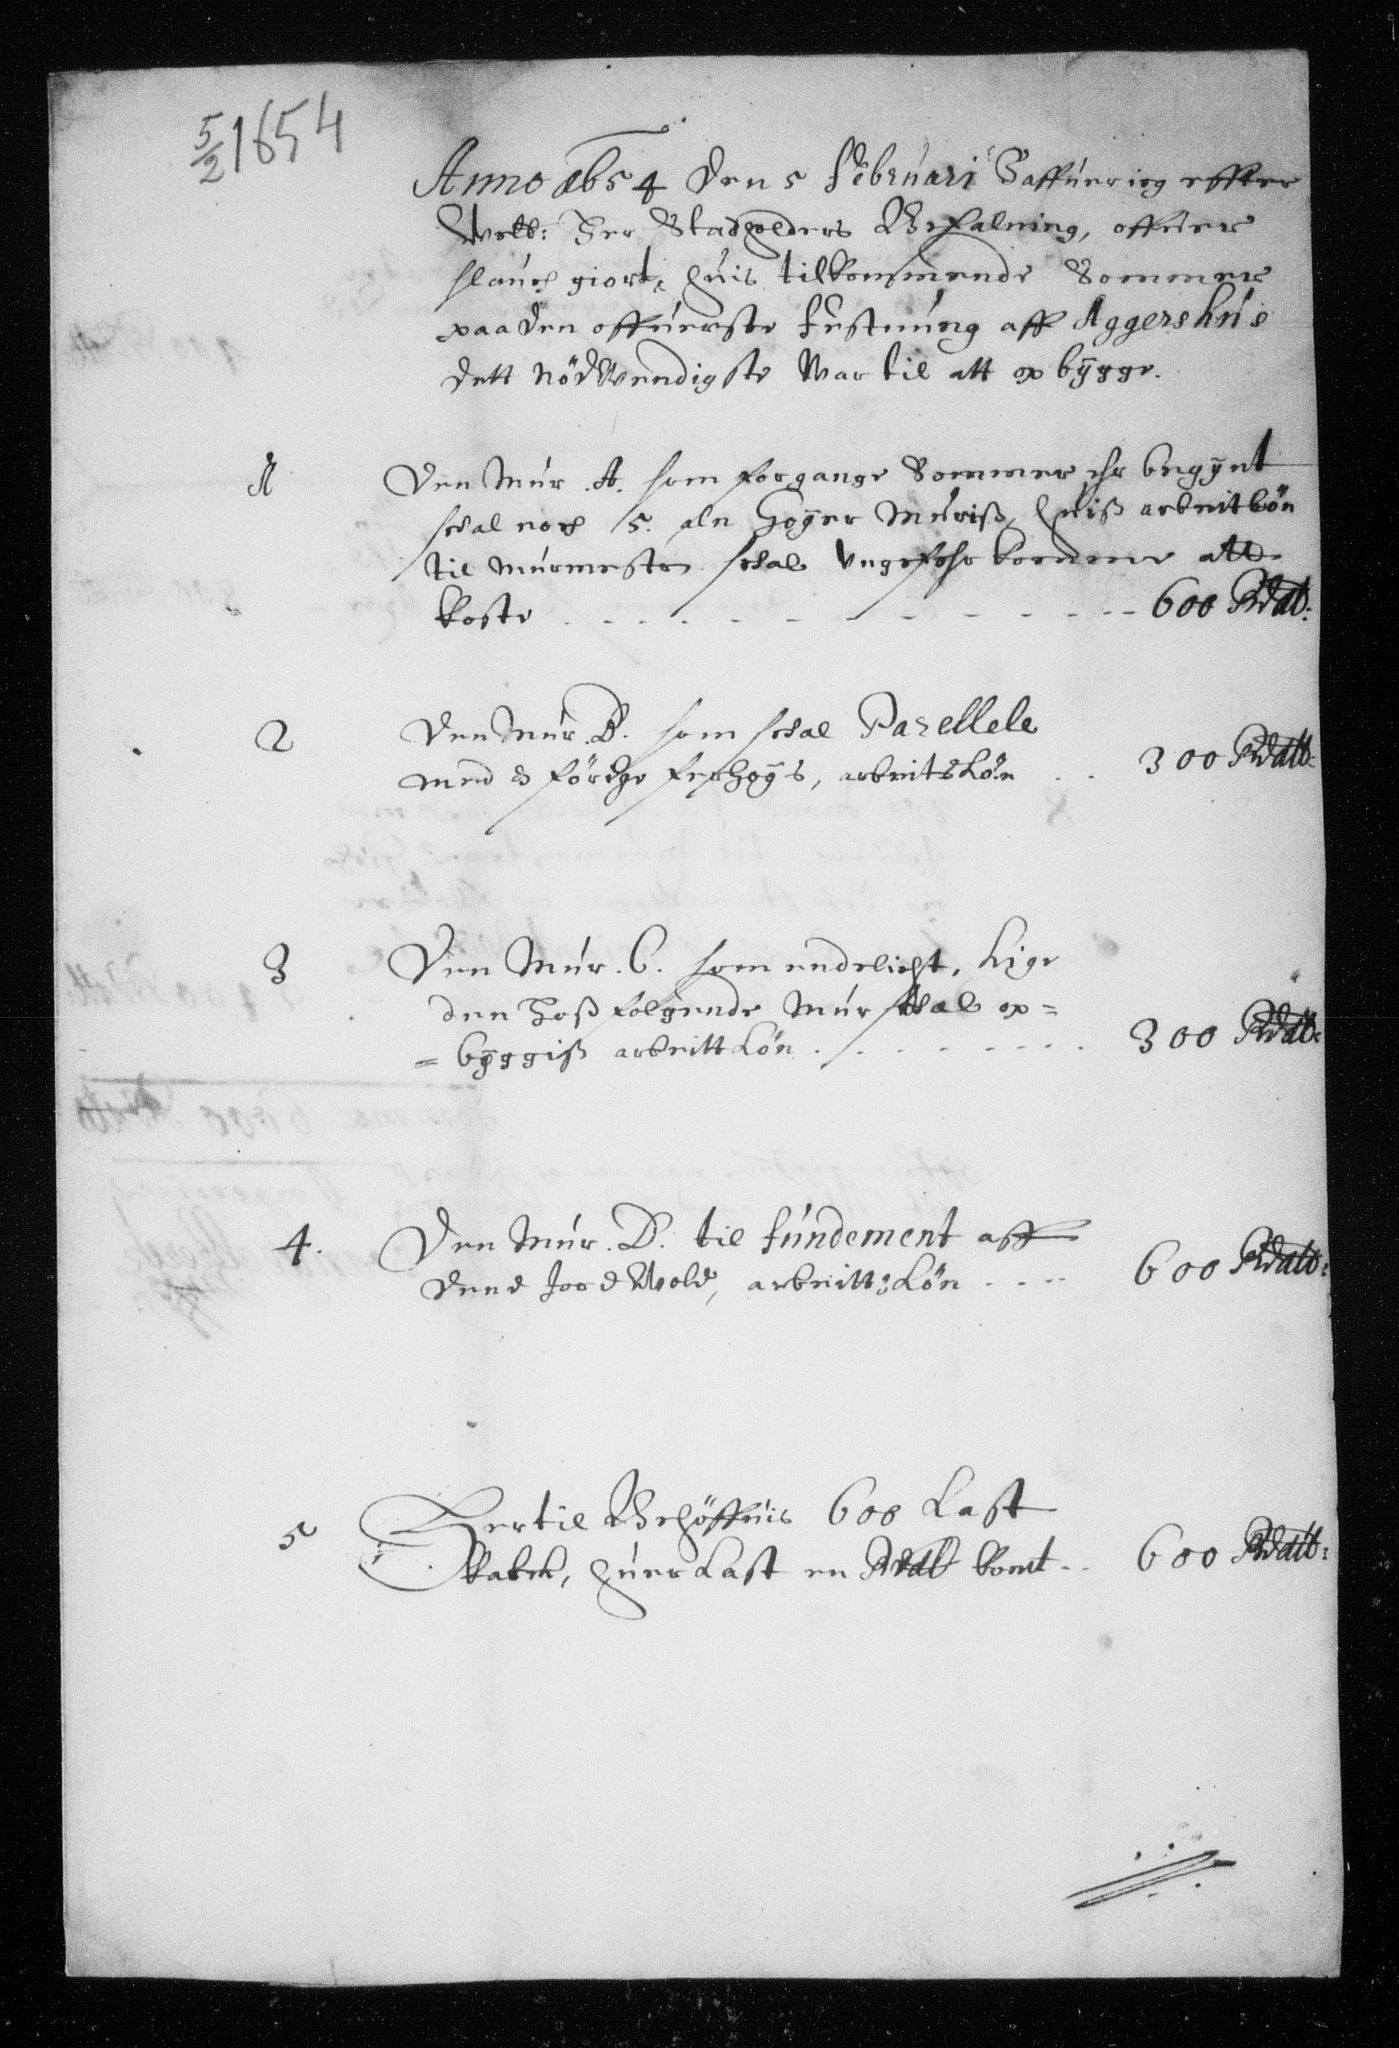 5/2 1654
Anno 1654 den 5 Februari Haffuer ieg effter
Welb: Her Stadholders Befalning, offuer
slauch giort, huis tilkommende Sommer
paa den offuerste Festnung aff Aggershus
dett nödwendigste war til att op bÿgge.
1 Den Mur .A. som forgange Sommer ehr begÿnt
schal noch 5. aln Hoÿer Muriß, huiß arbeitslön
til Murmester schal ungefehr komme att
koste 600 Rdal:
2 Den Mur .B. som schal Parellele
med d förige forhoÿs, arbeitslön 300 Rdall:
3 Den Mur .C. som endelicht, lige
den Hoß folgende Mur schal op=
=bÿggiß arbeitt Lön 300 Rdall:
4. Den Mur .D. til fundement aff
dend Jord Wold, arbeitts Lön 600 Rdall:
5 Hertil Behöffuis 600 Last
Kalch, huer Last en Rdal komt 600 Rdall: